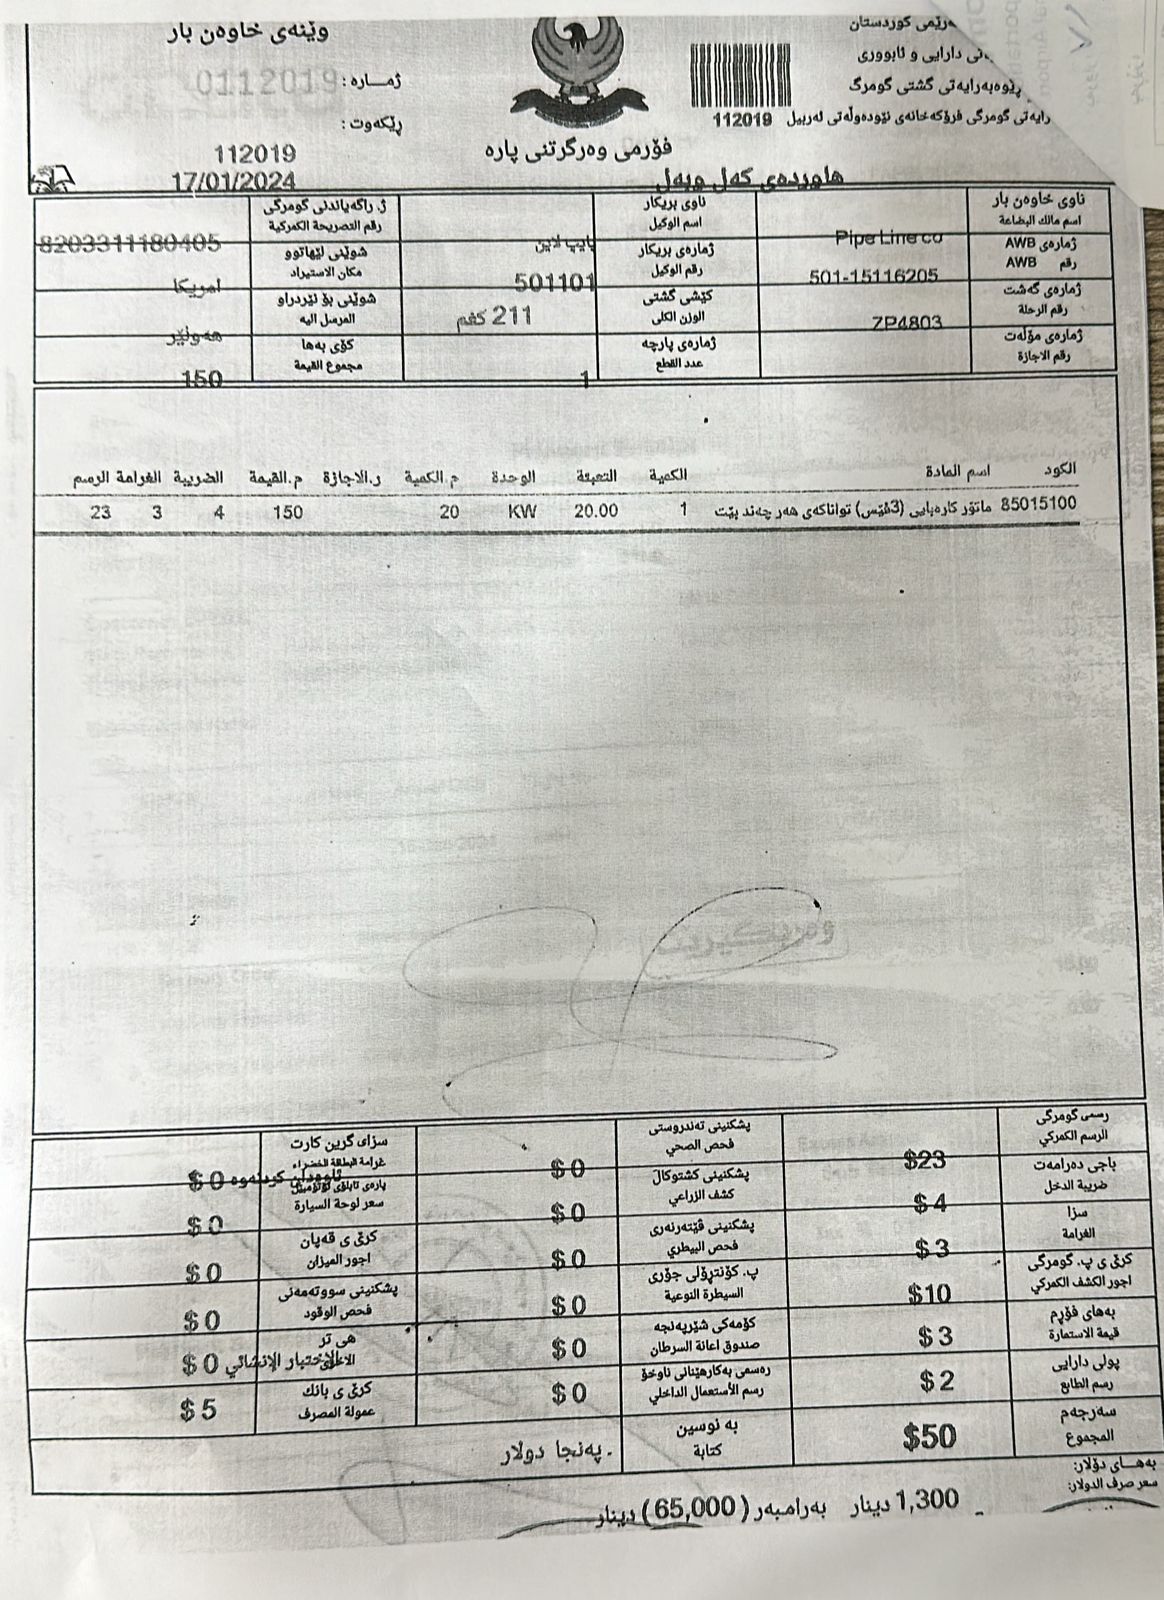 وێنەی خاوەن بار
ژمـــارە: 0112019
ڕێکەوت:
112019
17/01/2024
ڕێمی کوردستان
نی دارایی و ئابووری
ڕێوەبەرایەتی گشتی گومرگ
رایەتی گومرگی فرۆکەخانەی نێودەوڵەتی ئەربیل
112019
فۆرمی وەرگرتنی پارە
هاوردەی کەل وپەل
ناوی خاوەن بار
اسم مالك البضاعة
Pipe Line co
ناوی بریکار
اسم الوكيل
پایپ لاین
ژ. راگەیاندنی گومرگی
رقم التصريحة الكمركية
8203311180405
ژمارەی AWB
رقم AWB
501-15116205
ژمارەی بریکار
رقم الوكيل
501101
شوێنی لێهاتوو
مكان الاستيراد
امريكا
ژمارەی گەشت
رقم الرحلة
ZP4803
کێشی گشتی
الوزن الكلی
211 كغم
شوێنی بۆ نێردراو
المرسل اليه
هەولێر
ژمارەی مۆڵەت
رقم الاجازة
ژمارەی پارچە
عدد القطع
1
کۆی بەها
مجموع القيمة
150
الكود اسم المادة الكمية التعبئة الوحدة م.الكمية ر.الاجازة م.القيمة الضريبة الغرامة الرسم
85015100 ماتۆر کارەبایی (3فێس) تواناکەی هەر چەند بێت 1 20.00 KW 20 150 4 3 23
وەربگیریت
رسمی گومرگی
الرسم الكمركي
$23
پشکنینی تەندروستی
فحص الصحي
$0
سزای گرین کارت
غرامة البطاقة الخضراء
$0
باجی دەرامەت
ضريبة الدخل
$4
پشکنینی کشتوکاڵ
كشف الزراعي
$0
سعر لوحة السيارة
$0
سزا
الغرامة
$3
پشکنینی ڤێتەرنەری
فحص البيطري
$0
کرێ ی قەپان
اجور الميزان
$0
کرێ ی پ. گومرگی
اجور الكشف الكمركي
$10
پ. کۆنترۆلی جۆری
السيطرة النوعية
$0
پشکنینی سووتەمەنی
فحص الوقود
$0
بەهای فۆڕم
قيمة الاستمارة
$3
کۆمەکی شێرپەنجە
صندوق اعانة السرطان
$0
هی تر
الاختبار الإنشائي
$0
پولی دارایی
رسم الطابع
$2
رەسمی بەکارهێنانی ناوخۆ
رسم الأستعمال الداخلي
$0
کرێ ی بانك
عمولة المصرف
$5
سەرجەم
المجموع
$50
بە نوسین
كتابة
پەنجا دولار.
بەهـــای دۆلار:
سعر صرف الدولار:
1,300 دینار بەرامبەر (65,000) دینار